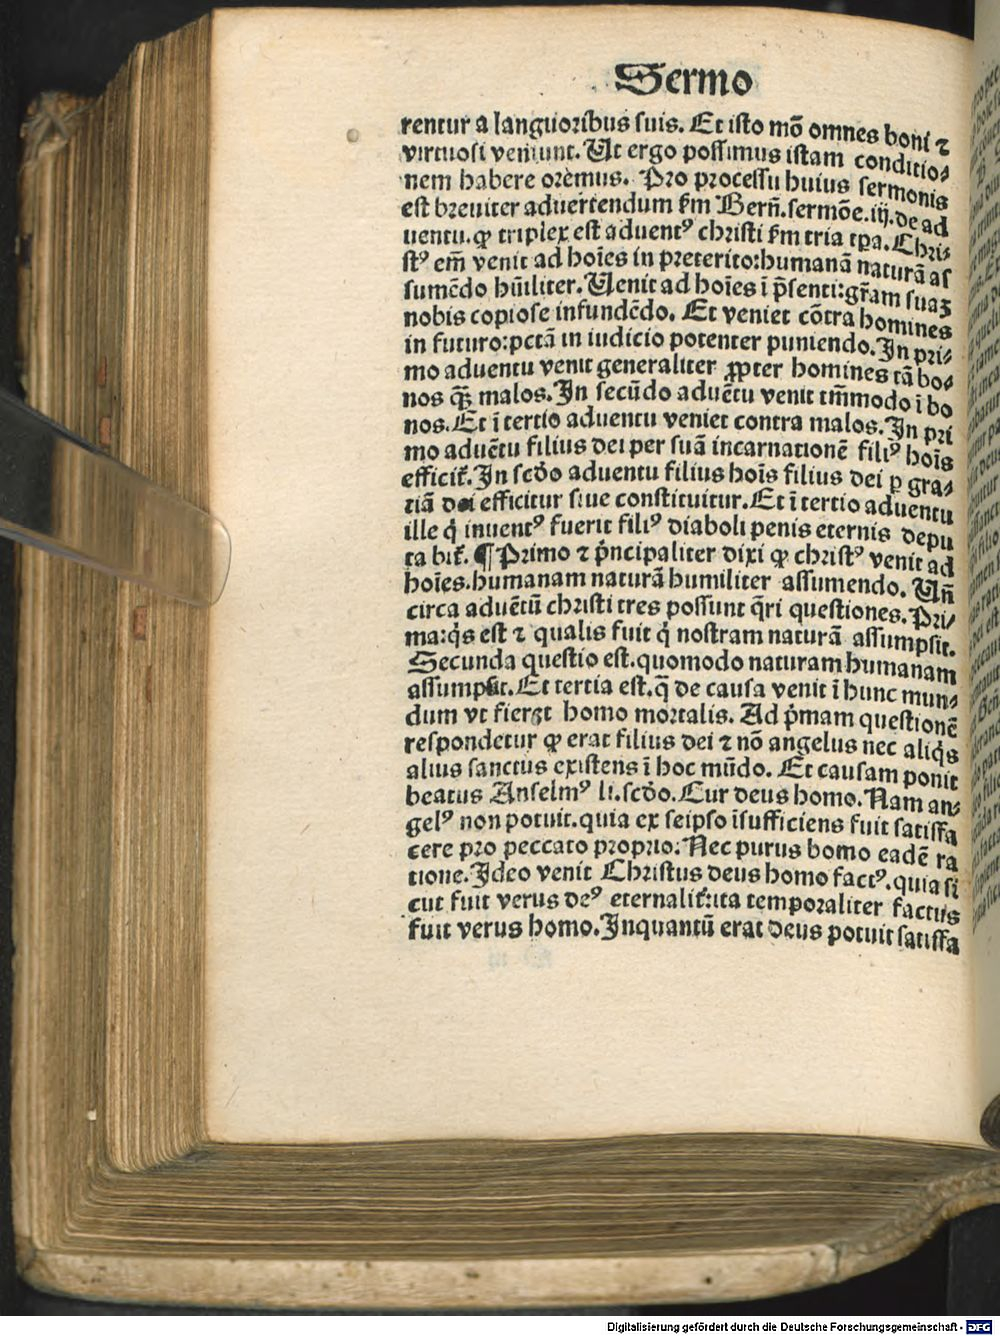 Sermo
rentur a languoribus suis. Et isto mō omnes boni ⁊
virtuosi veniunt. Ut ergo possimus istam conditio⸗
nem habere oremus. Pro processu huius sermonis
est breuiter aduertendum ẜm Bern̄. sermōe. iij. de ad
uentu. ꝙ triplex est aduentꝰ christi ẜm tria tꝑa. Chri⸗
stꝰ em̄ venit ad hoīes in preterito: humanā naturā as
sumēdo hūiliter. Uenit ad hoīes ī p̄senti: gr̄am suaꝫ
nobis copiose infundēdo. Et veniet cōtra homines
in futuro: pctā in iudicio potenter puniendo. In pri⸗
mo aduentu venit generaliter ꝓpter homines tā bo⸗
nos ꝙ̄ꝫ malos. In secūdo aduētu venit tm̄modo ī bo
nos. Et ī tertio aduentu veniet contra malos. In pri
mo aduētu filius dei per suā incarnationē filiꝰ hoīs
efficit̄. In scd̄o aduentu filius hoīs filius dei ꝑ gra⸗
tiā dei efficitur siue constituitur. Et ī tertio aduentu
ille q̇ inuentꝰ fuerit filiꝰ diaboli penis eternis depu
tabit̄. ¶ Primo ⁊ p̄ncipaliter dixi ꝙ christꝰ venit ad
hoīes. humanam naturā humiliter assumendo. Un̄
circa aduētū christi tres possunt q̄ri questiones. Pri⸗
ma: q̇s est ⁊ qualis fuit q̇ nostram naturā assumpsit.
Secunda questio est. quomodo naturam humanam
assumpsit. Et tertia est. q̄ de causa venit ī hunc mun⸗
dum vt fieret homo mortalis. Ad p̄mam questionē
respondetur ꝙ erat filius dei ⁊ nō angelus nec aliq̇s
alius sanctus existens ī hoc mūdo. Et causam ponit
beatus Anselmꝰ li. scd̄o. Cur deus homo. Nam an⸗
gelꝰ non potuit. quia ex seipso īsufficiens fuit satisfa
cere pro peccato proprio: Nec purus homo eadē ra
tione. Ideo venit Christus deus homo factꝰ. quia si
cut fuit verus deꝰ eternalit̄: ita temporaliter factus
fuit verus homo. Inquantū erat deus potuit satisfa
Digitalisierung gefördert durch die Deutsche Forschungsgemeinschaft - DFG